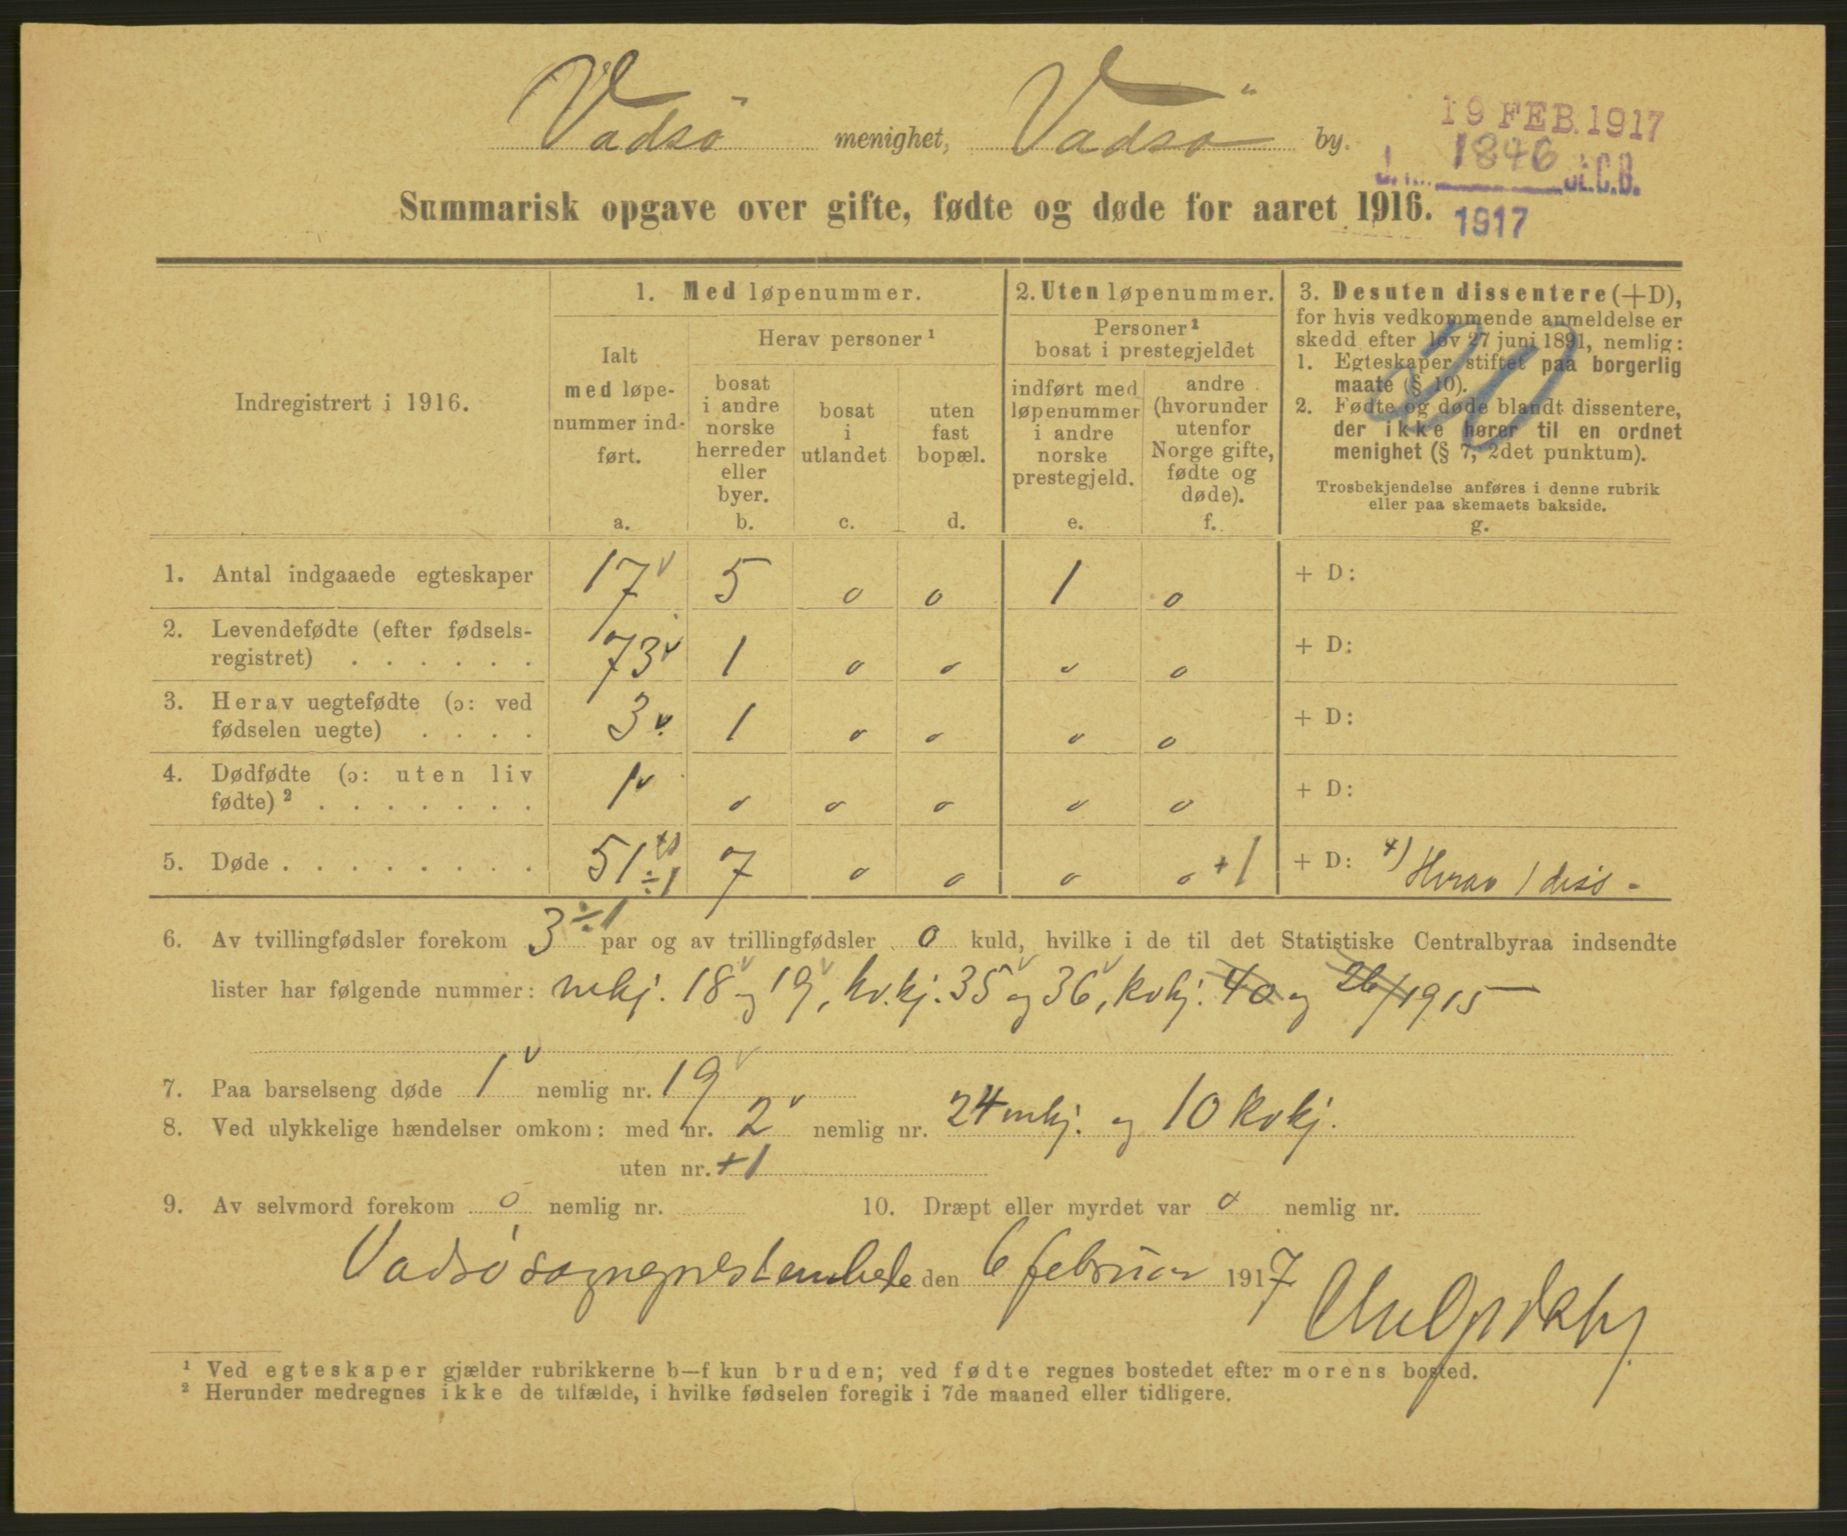 Vadsø menighet, Vadsø by.
19 FEB. 1917
1846 St.C.B.
1917
Summarisk opgave over gifte, fødte og døde for aaret 1916.
Indregistrert i 1916.
1. Med løpenummer.
Ialt
med løpe-
nummer ind-
ført.
a.
Herav personer ¹
bosat
i andre
norske
herreder
eller
byer.
b.
bosat
i
utlandet
c.
uten
fast
bopæl.
d.
2. Uten løpenummer.
Personer ¹
bosat i prestegjeldet
indført med
løpenummer
i andre
norske
prestegjeld.
e.
andre
(hvorunder
utenfor
Norge gifte,
fødte og
døde).
f.
3. Desuten dissentere (+D),
for hvis vedkommende anmeldelse er
skedd efter lov 27 juni 1891, nemlig:
1. Egteskaper stiftet paa borgerlig
maate (§ 10).
2. Fødte og døde blandt dissentere,
der ikke hører til en ordnet
menighet (§ 7, 2det punktum).
Trosbekjendelse anføres i denne rubrik
eller paa skemaets bakside.
g.
1. Antal indgaaede egteskaper 17 v 5 o o 1 o + D:
2. Levendefødte (efter fødsels-
registret) . . . . . . 73 v 1 o o o o + D:
3. Herav uegtefødte (ɔ: ved
fødselen uegte) . . . . 3 v. 1 o o o o + D:
4. Dødfødte (ɔ: uten liv
fødte) ² . . . . . . . 1 v o o o o o + D:
5. Døde . . . . . . . . 51 +1 ÷1 7 o o o o +1 + D: +) Herav 1 diss -
6. Av tvillingfødsler forekom 3 ÷1 par og av trillingfødsler o kuld, hvilke i de til det Statistiske Centralbyraa indsendte
lister har følgende nummer: mkj. 18 v og 19 v, kv.kj. 35 v og 36 v, kvkj. 40 og 26/1915
7. Paa barselseng døde 1 v nemlig nr. 19 v
8. Ved ulykkelige hændelser omkom: med nr. 2 v nemlig nr. 24 mkj. og 10 kvkj.
uten nr. +1
9. Av selvmord forekom o nemlig nr. 10. Dræpt eller myrdet var o nemlig nr.
Vadsø sogneprestembede den 6 februar 1917
¹ Ved egteskaper gjælder rubrikkerne b—f kun bruden; ved fødte regnes bostedet efter morens bosted.
² Herunder medregnes ikke de tilfælde, i hvilke fødselen foregik i 7de maaned eller tidligere.